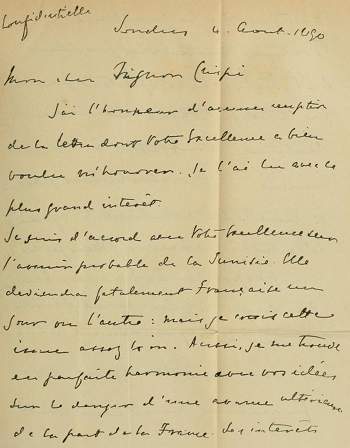 Confidentielle
Londres 4. Aout. 1890
Mon cher Signor Crispi
J'ai l'honneur d'accuser reception
de la lettre dont Votre Excellence a bien
voulu m'honorer. Je l'ai lu avec le
plus grand interêt.
Je suis d'accord avec Votre Excellence sur
l'avenir probable de la Tunisie. Elle
deviendra fatalement Française un
jour ou l'autre: mais je crois cette
issue assez loin. Aussi, je me trouve
en parfaite harmonie avec vos idées
sur le danger d'une avance ultérieure
de la part de la France. Les interets